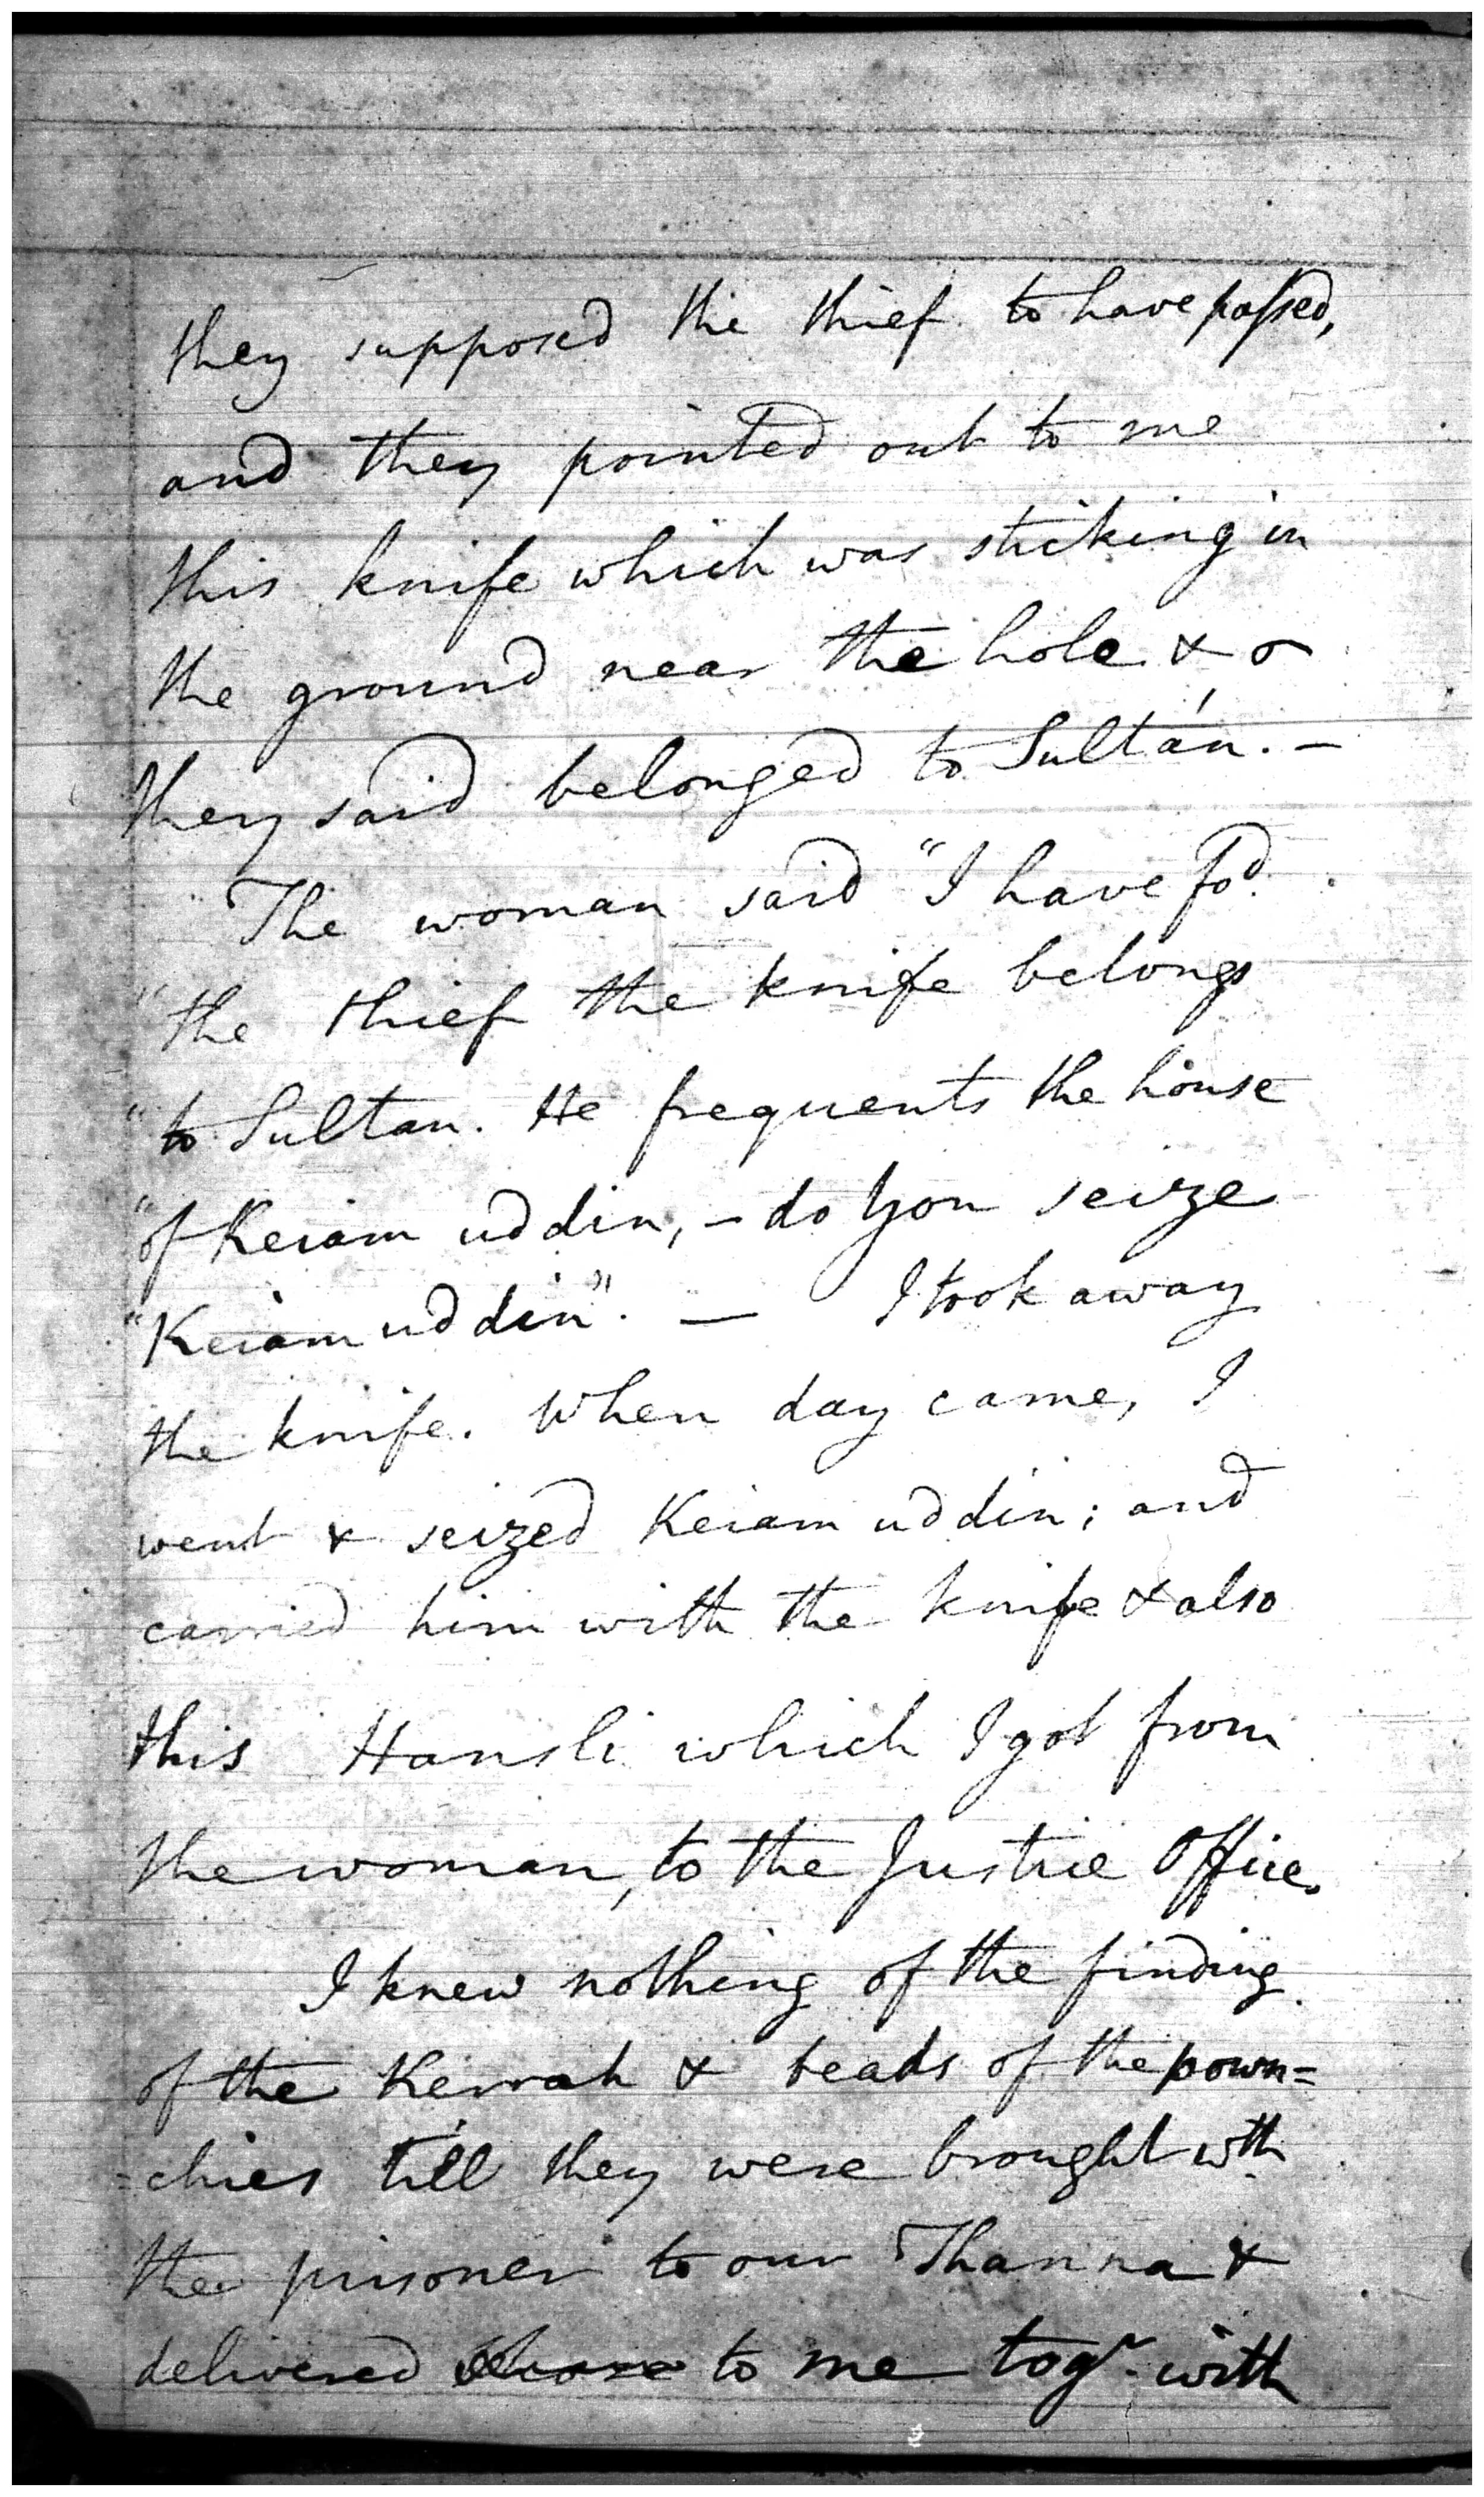 they supposed the thief to have passed,
and they pointed out to me
this knife which was sticking in
the ground near the hole &
they said belonged to Sultán. –
The woman said "I have fod.
"the thief the knife belongs
"to Sultan. He frequents the house
"of Keiam uddin, – do You seize
"Keiam uddin". – I took away
the knife. When day came, I
went & seized Keiam uddin; and
carried him with the knife & also
this Hansli which I got from
the woman, to the Justice Office.
I knew nothing of the finding
of the Kerrah & beads of the pown=
=chies till they were brought wth
the prisoner to our Thanna &
delivered to me togr. with